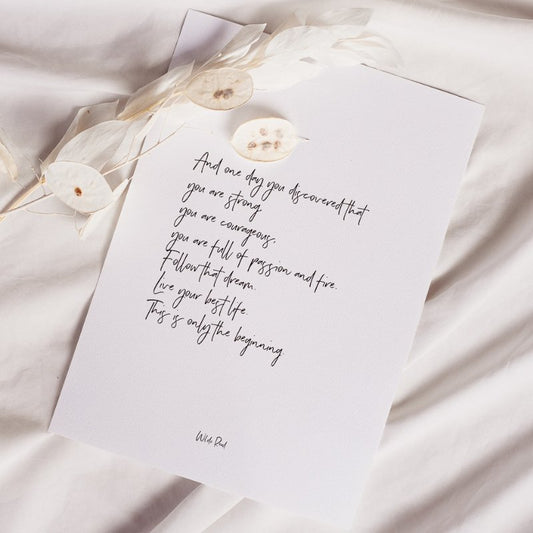 And one day you discovered that
you are strong,
you are courageous,
you are full of passion and fire.
Follow that dream.
Live your best life.
This is only the beginning.